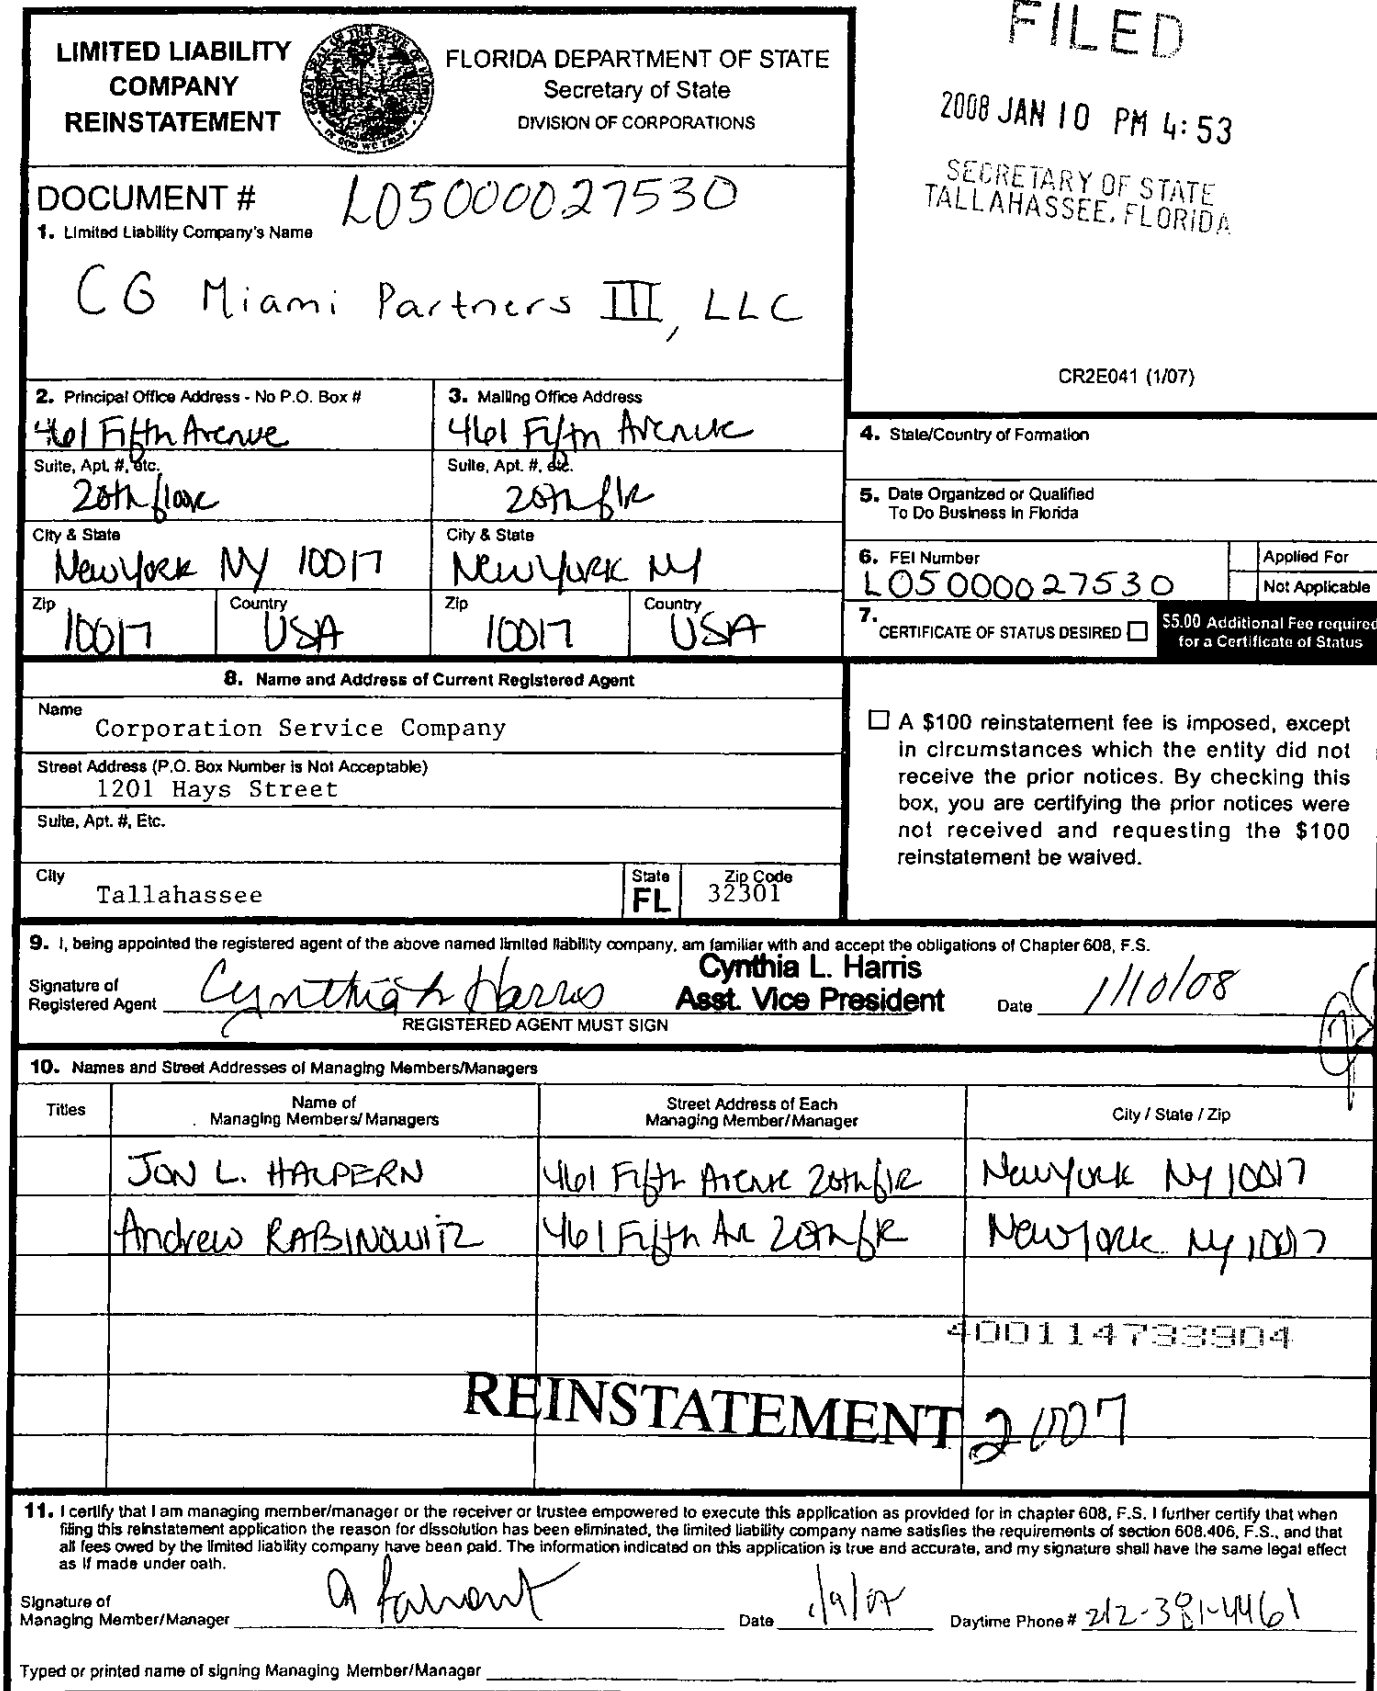 LIMITED LIABILITY
COMPANY
REINSTATEMENT
FLORIDA DEPARTMENT OF STATE
Secretary of State
DIVISION OF CORPORATIONS
FILED
2008 JAN 10 PM 4:53
SECRETARY OF STATE
TALLAHASSEE, FLORIDA
DOCUMENT # L05000027530
1. Limited Liability Company's Name
CG Miami Partners III, LLC
CR2E041 (1/07)
2. Principal Office Address - No P.O. Box #
461 Fifth Avenue
Suite, Apt. #, etc.
20th floor
City & State
New York NY 10017
Zip
10017
Country
USA
3. Mailing Office Address
461 Fifth Avenue
Suite, Apt. #, etc.
20th flr
City & State
New York NY
Zip
10017
Country
USA
4. State/Country of Formation
5. Date Organized or Qualified
To Do Business in Florida
6. FEI Number
L05000027530
Applied For
Not Applicable
7. CERTIFICATE OF STATUS DESIRED
$5.00 Additional Fee required
for a Certificate of Status
8. Name and Address of Current Registered Agent
Name
Corporation Service Company
Street Address (P.O. Box Number is Not Acceptable)
1201 Hays Street
Suite, Apt. #, Etc.
City
Tallahassee
State
FL
Zip Code
32301
A $100 reinstatement fee is imposed, except
in circumstances which the entity did not
receive the prior notices. By checking this
box, you are certifying the prior notices were
not received and requesting the $100
reinstatement be waived.
9. I, being appointed the registered agent of the above named limited liability company, am familiar with and accept the obligations of Chapter 608, F.S.
Signature of
Registered Agent
Cynthia L Harris
Cynthia L. Harris
Asst. Vice President
Date 1/10/08
REGISTERED AGENT MUST SIGN
10. Names and Street Addresses of Managing Members/Managers
Titles
Name of
Managing Members/Managers
Street Address of Each
Managing Member/Manager
City / State / Zip
JON L. HALPERN 461 Fifth Avenue 20th flr New York NY 10017
Andrew RABINOWITZ 461 Fifth Av 20th flr New York NY 10017
400114733904
REINSTATEMENT 2007
11. I certify that I am managing member/manager or the receiver or trustee empowered to execute this application as provided for in chapter 608, F.S. I further certify that when
filing this reinstatement application the reason for dissolution has been eliminated, the limited liability company name satisfies the requirements of section 608.406, F.S., and that
all fees owed by the limited liability company have been paid. The information indicated on this application is true and accurate, and my signature shall have the same legal effect
as if made under oath.
Signature of
Managing Member/Manager
Date
Daytime Phone # 212-381-4461
Typed or printed name of signing Managing Member/Manager